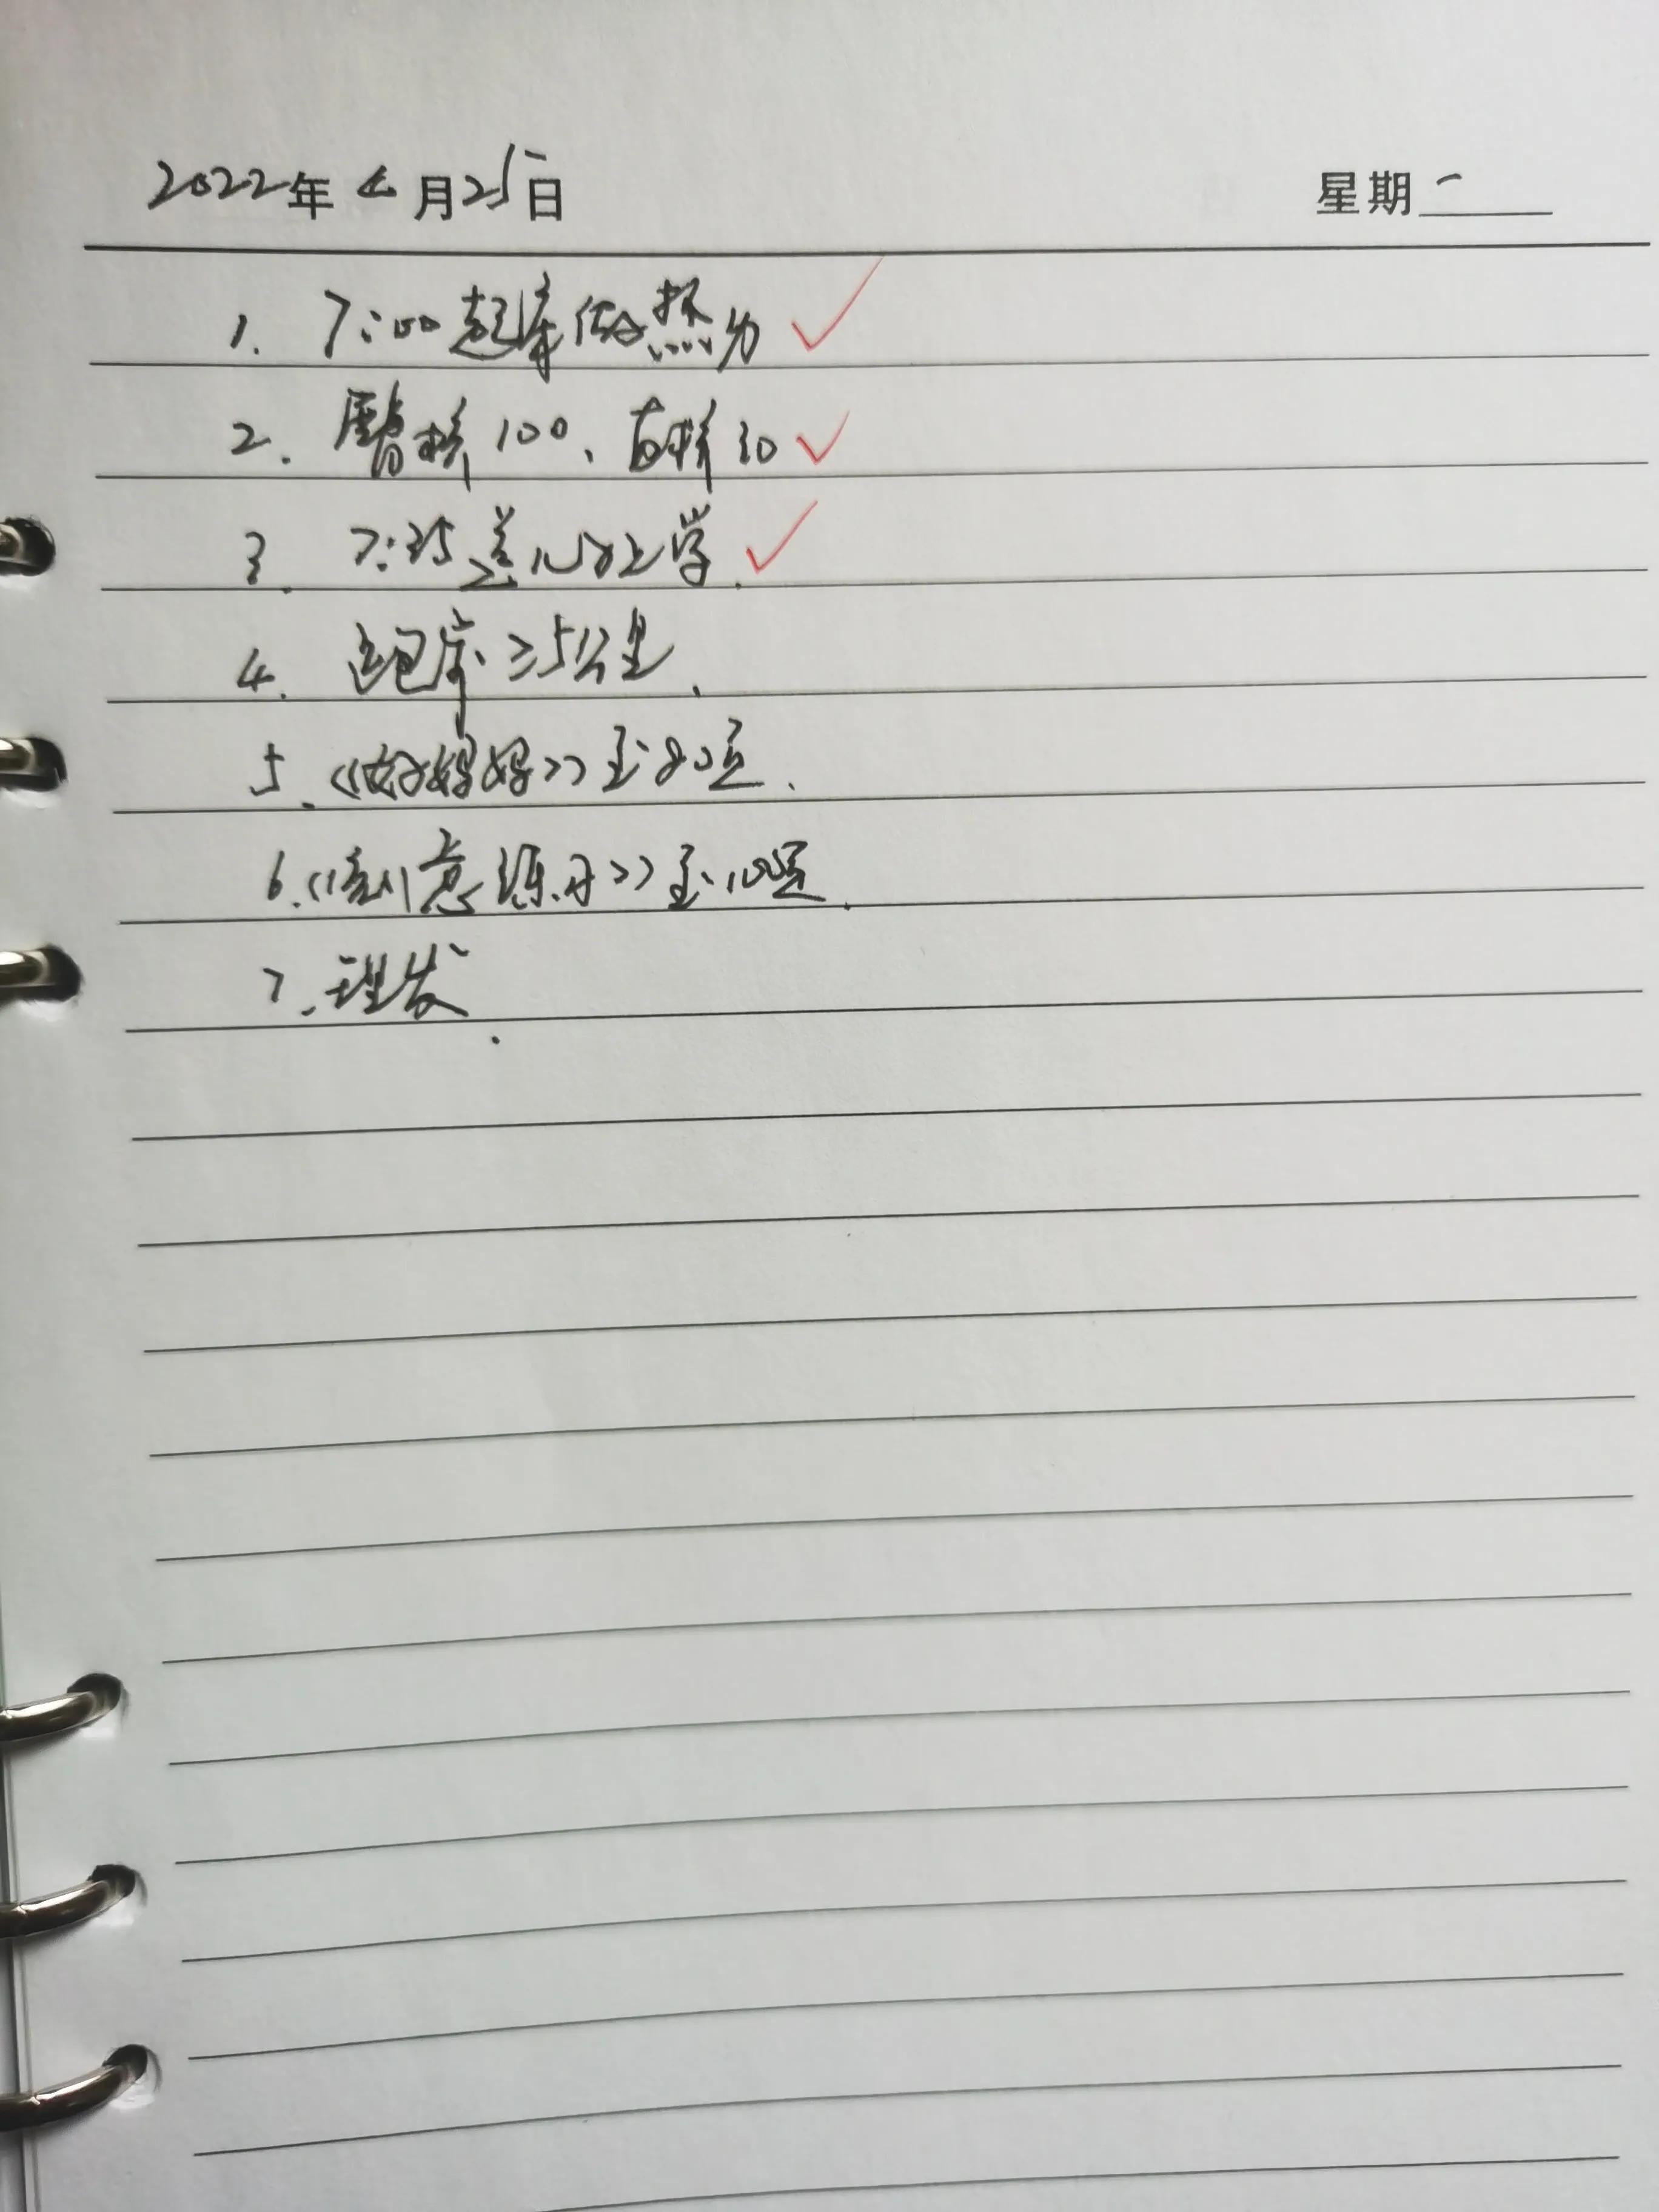 2022年4月25日 星期一
1. 7:00起床做热身 ✓
2. 臀桥100、直桥30 ✓
3. 7:35送上学. ✓
4. 跑步≥5公里.
5. 《好妈妈》至80页.
6. 《刻意练习》至100页.
7. 理发.